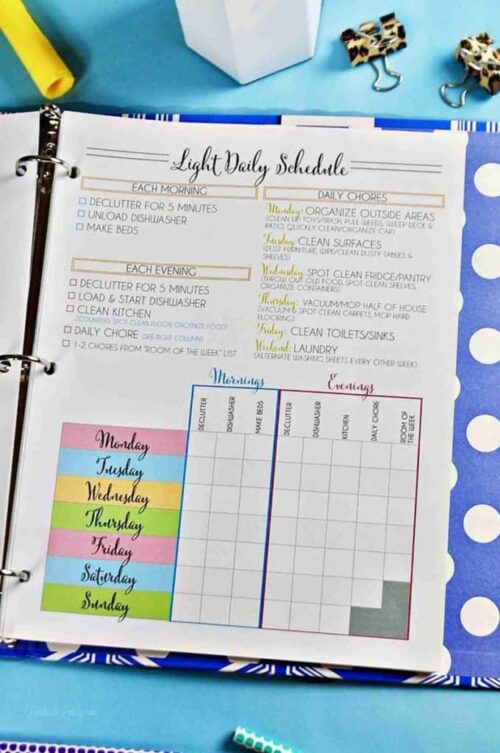 Light Daily Schedule
EACH MORNING
DECLUTTER FOR 5 MINUTES
UNLOAD DISHWASHER
MAKE BEDS
EACH EVENING
DECLUTTER FOR 5 MINUTES
LOAD & START DISHWASHER
CLEAN KITCHEN
(COUNTERS, SPOT CLEAN FLOOR, ORGANIZE FOOD)
DAILY CHORE (SEE RIGHT COLUMN)
1-2 CHORES FROM "ROOM OF THE WEEK" LIST
DAILY CHORES
Monday: ORGANIZE OUTSIDE AREAS
(CLEAN UP TOYS/TRASH, PULL WEEDS, SWEEP DECK &
PATIO, QUICKLY CLEAN/ORGANIZE CAR)
Tuesday: CLEAN SURFACES
(DUST FURNITURE, WIPE/CLEAN DUSTY TABLES &
SHELVES)
Wednesday: SPOT CLEAN FRIDGE/PANTRY
(THROW OUT OLD FOOD, SPOT CLEAN SHELVES,
ORGANIZE CONTAINERS)
Thursday: VACUUM/MOP HALF OF HOUSE
(VACUUM & SPOT CLEAN CARPETS, MOP HARD
FLOORING)
Friday: CLEAN TOILETS/SINKS
Weekend: LAUNDRY
(ALTERNATE WASHING SHEETS EVERY OTHER WEEK)
Mornings
Evenings
DECLUTTER
DISHWASHER
MAKE BEDS
DECLUTTER
DISHWASHER
KITCHEN
DAILY CHORE
ROOM OF
THE WEEK
Monday
Tuesday
Wednesday
Thursday
Friday
Saturday
Sunday